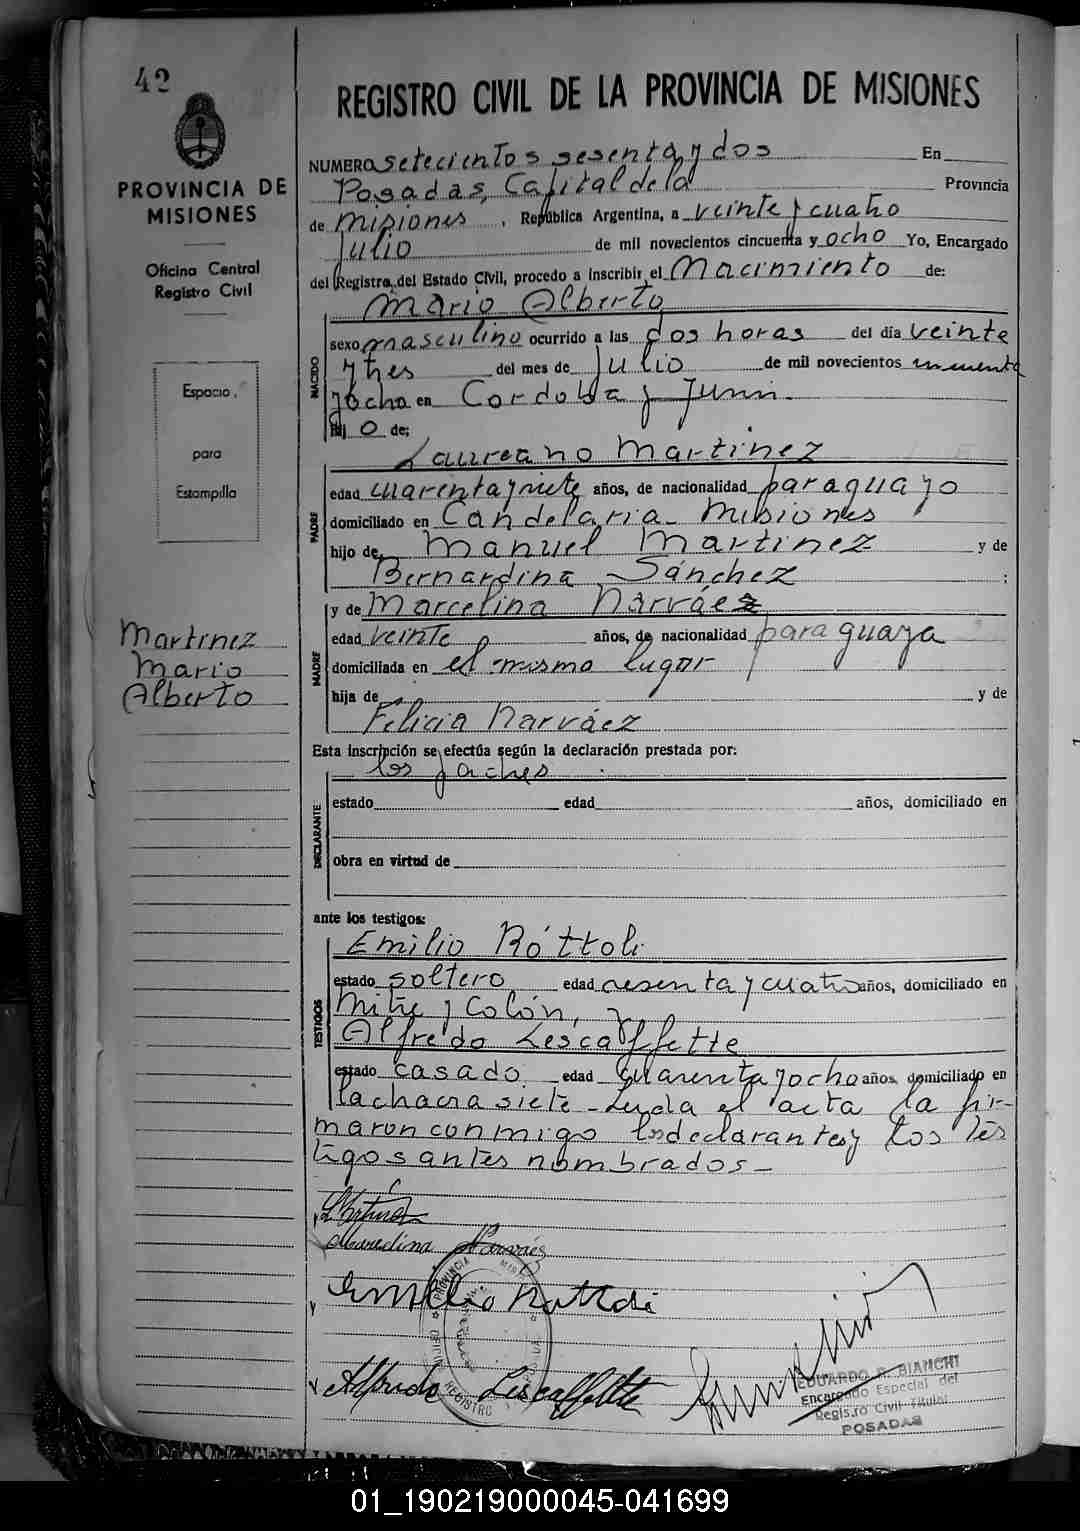 42
REGISTRO CIVIL DE LA PROVINCIA DE MISIONES
PROVINCIA DE
MISIONES
Oficina Central
Registro Civil
Espacio
para
Estampilla
Martinez
Mario
Alberto
NUMERO setecientos sesenta y dos En
Posadas, Capital de la Provincia
de Misiones, República Argentina, a veinte y cuatro
Julio de mil novecientos cincuenta y ocho Yo, Encargado
del Registro del Estado Civil, procedo a inscribir el Nacimiento de:
Mario Alberto
NACIDO
sexo masculino ocurrido a las dos horas del día veinte
y tres del mes de Julio de mil novecientos cincuenta
y ocho en Cordoba y Junin.
hijo de:
Laureano Martinez
PADRE
edad cuarenta y siete años, de nacionalidad paraguayo
domiciliado en Candelaria - Misiones
hijo de Manuel Martinez y de
Bernardina Sánchez :
y de Marcelina Narváez
MADRE
edad veinte años, de nacionalidad paraguaya
domiciliada en el mismo lugar
hija de y de
Felicia Narváez
Esta inscripción se efectúa según la declaración prestada por:
los
DECLARANTE
estado edad años, domiciliado en
obra en virtud de
ante los testigos:
Emilio Róttoli
TESTIGOS
estado soltero edad sesenta y cuatro años, domiciliado en
Mitre y Colón, y
Alfredo Lescaffette
estado casado edad cuarenta y ocho años, domiciliado en
la chacra siete - Leida el acta la fir-
maron conmigo los declarantes y los tes
tigos antes nombrados -
Narváez
Emilio Rottoli
Alfredo Lescaffette
REGISTRO
PROVINCIA
EDUARDO R. BIANCHI
Encargado Especial del
Registro Civil Titular
POSADAS
01_190219000045-041699